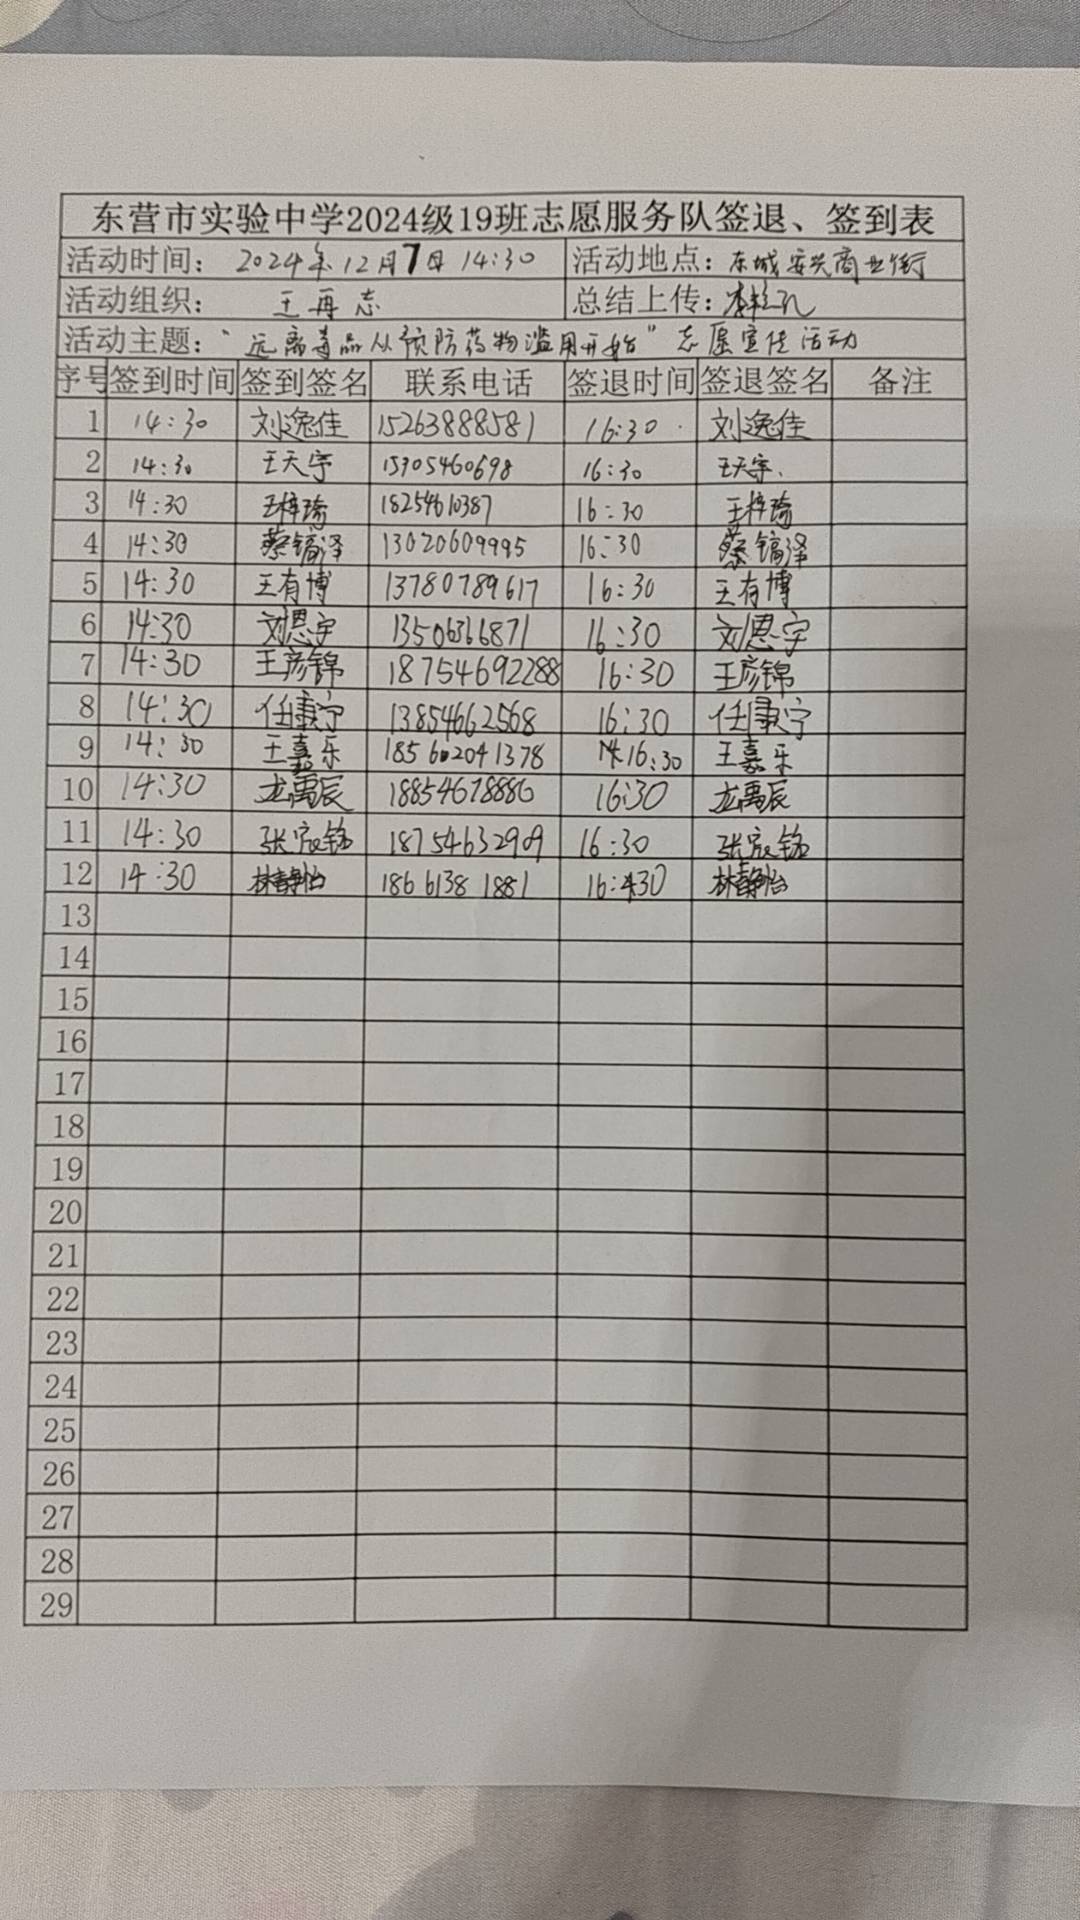 东营市实验中学2024级19班志愿服务队签退、签到表
活动时间：2024年12月7日 14:30 活动地点：东城安兴商业街
活动组织：王再志 总结上传：
活动主题：“远离毒品从预防药物滥用开始”志愿宣传活动
序号 签到时间 签到签名 联系电话 签退时间 签退签名 备注
1 14:30 刘逸佳 15263888581 16:30 刘逸佳
2 14:30 王天宇 15905460698 16:30 王天宇
3 14:30 王梓瑜 18254610387 16:30 王梓瑜
4 14:30 蔡镐泽 13020609995 16:30 蔡镐泽
5 14:30 王有博 13780789617 16:30 王有博
6 14:30 刘恩宇 13506366871 16:30 刘恩宇
7 14:30 王彦锦 18754692288 16:30 王彦锦
8 14:30 任康宁 13854662568 16:30 任康宁
9 14:30 王嘉乐 185602041378 16:30 王嘉乐
10 14:30 龙禹辰 18854678886 16:30 龙禹辰
11 14:30 张宸铭 18754632909 16:30 张宸铭
12 14:30 林静怡 18661381881 16:30 林静怡
13
14
15
16
17
18
19
20
21
22
23
24
25
26
27
28
29